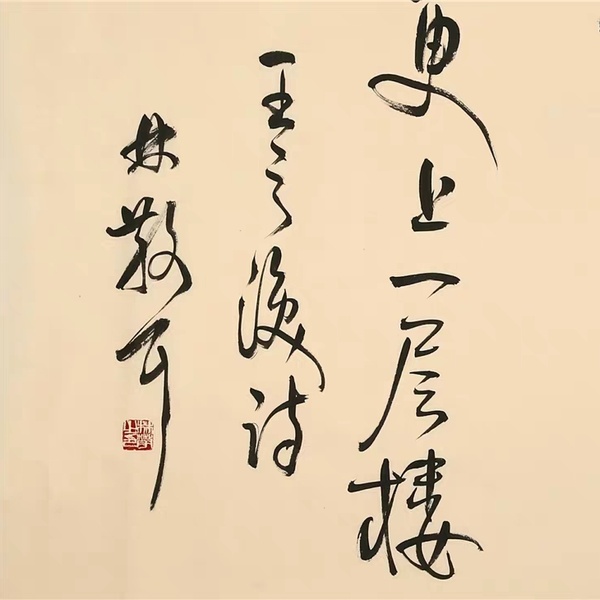 更上一层楼
王之涣诗
林散耳